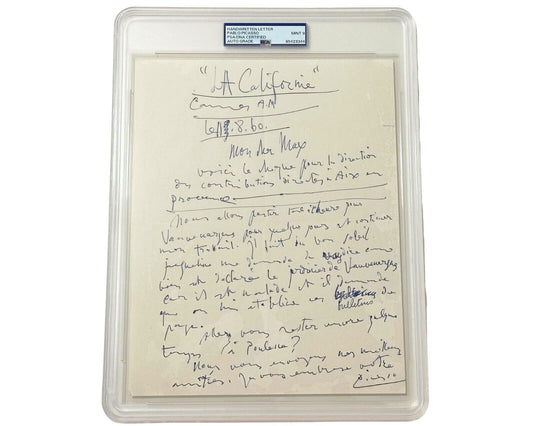 HANDWRITTEN LETTER
PABLO PICASSO
PSA/DNA CERTIFIED
AUTO GRADE
MINT 9
"LA Californie"
Cannes A.M
le .8.60.
Mon cher Max
voici le chèque pour la direction
des contributions directes à Aix en
provence
Nous allons partir tout à l'heure pour
Vauvenargues pour quelques jours et continuer
mon travail. Il fait du bon soleil.
Jacqueline me demande de comme
est déclaré le de Vauvenargues
car il est malade et il demande
que on lui établisse ces bulletins de
paye.
Allez vous rester encore quelque
temps à ?
Nous vous envoyons nos meilleures
amitiés. Je vous embrasse votre
Picasso